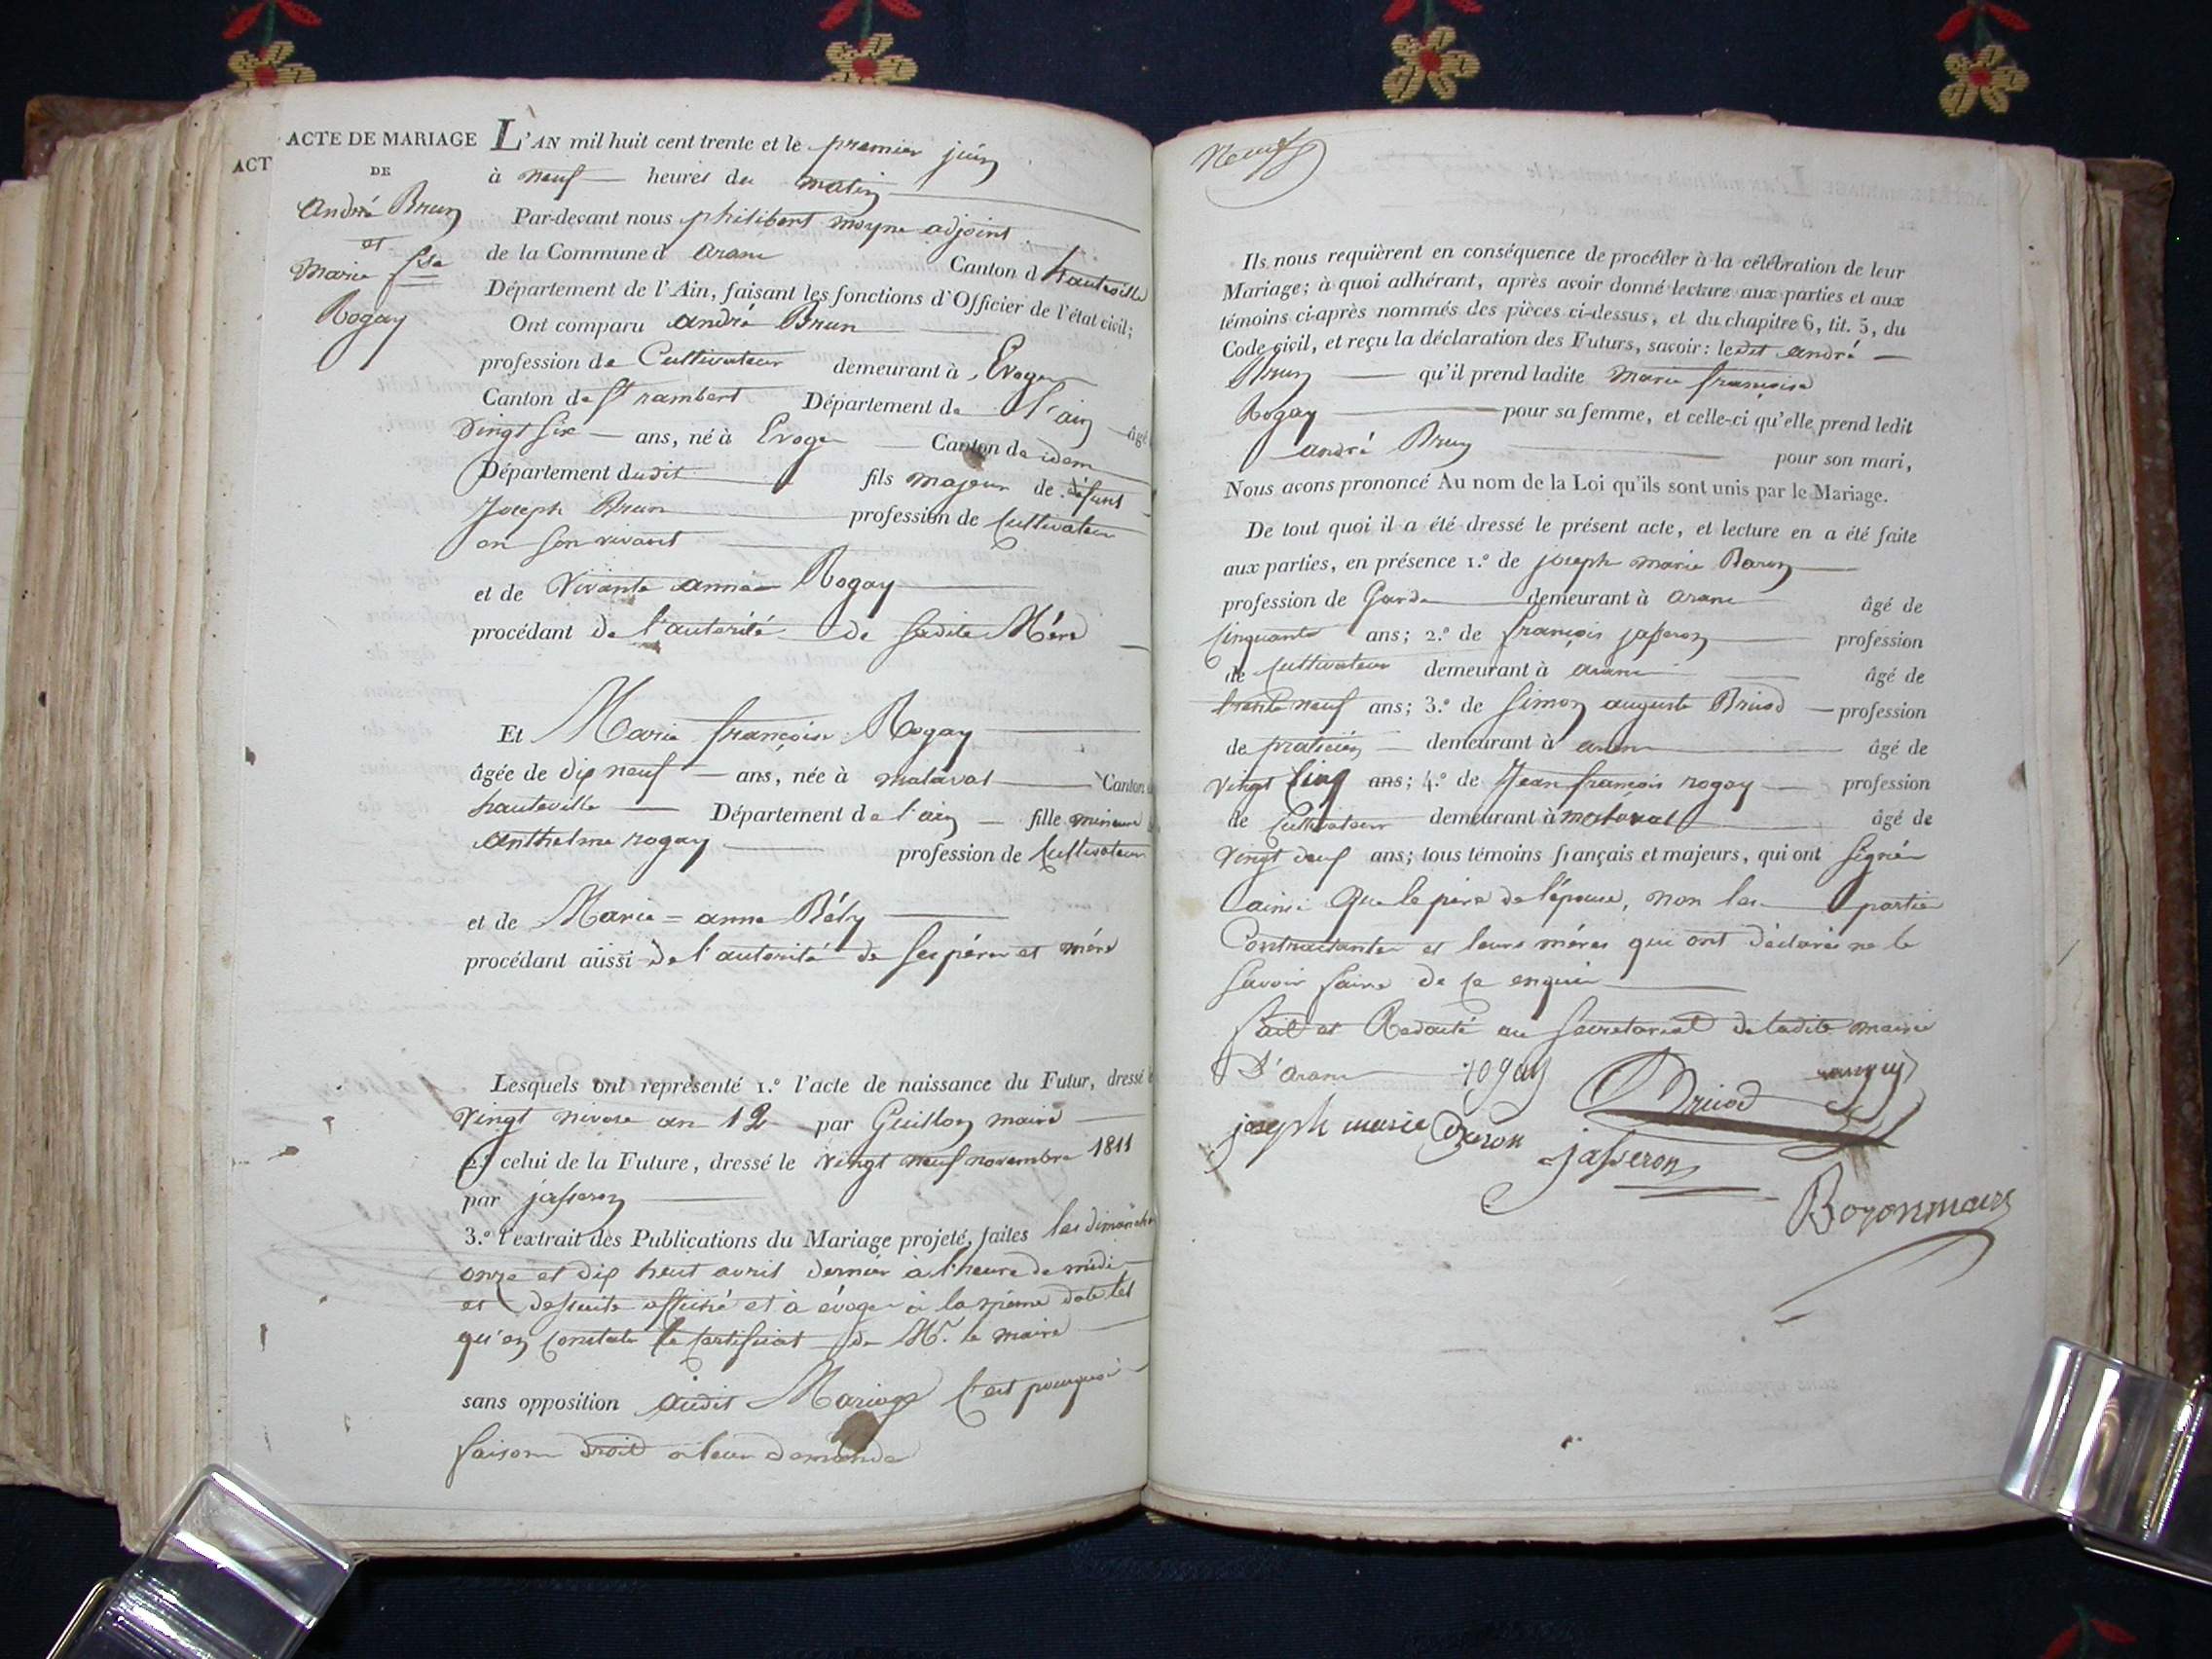 ACTE DE MARIAGE
ACT
DE
André Brun
et
Marie fse
Rogay
L'AN mil huit cent trente et le premier juin
à neuf heures du matin
Par-devant nous philibert moyne adjoint
de la Commune d'aranc Canton d'hauteville
Département de l'Ain, faisant les fonctions d'Officier de l'état civil;
Ont comparu andré Brun
profession de Cultivateur demeurant à Evoges
Canton de St rambert Département de l'ain âgé
Vingt six ans, né à Evoges Canton de idem
Département dudit fils majeur de défunt
Joseph Brun profession de Cultivateur
en son vivant
et de Vivante année Rogay
procédant de l'autorité de sadite Mère
Et Marie françoise Rogay
âgée de dix neuf ans, née à malaval Canton
hauteville Département de l'ain fille mineure
anthelme rogay profession de Cultivateur
et de Marie = anne Rély
procédant aussi de l'autorité de ses père et mère
Lesquels ont représenté 1.º l'acte de naissance du Futur, dressé
Vingt nivose an 12 par Guillon maire
2.º celui de la Future, dressé le vingt neuf novembre 1811
par jasseron
3.º l'extrait des Publications du Mariage projeté, faites les dimanches
onze et dix huit avril dernier à l'heure de midi
et desuite affiché et à évoges à la même date tel
qu'en constate le certificat de Mr. le maire
sans opposition audit Mariage C'est pourquoi
faisons droit à leur demande
Neuf
Ils nous requièrent en conséquence de procéder à la célébration de leur
Mariage; à quoi adhérant, après avoir donné lecture aux parties et aux
témoins ci-après nommés des pièces ci-dessus, et du chapitre 6, tit. 5, du
Code civil, et reçu la déclaration des Futurs, savoir: ledit andré
Brun qu'il prend ladite marie françoise
Rogay pour sa femme, et celle-ci qu'elle prend ledit
andré Brun pour son mari,
Nous avons prononcé Au nom de la Loi qu'ils sont unis par le Mariage.
De tout quoi il a été dressé le présent acte, et lecture en a été faite
aux parties, en présence 1.º de joseph marie
profession de Garde demeurant à aranc âgé de
Cinquante ans; 2.º de françois jasseron profession
de Cultivateur demeurant à aranc âgé de
trente neuf ans; 3.º de Simon auguste Bruod profession
de praticien demeurant à aranc âgé de
vingt Cinq ans; 4.º de Jean françois rogay profession
de Cultivateur demeurant à malaval âgé de
vingt deux ans; tous témoins français et majeurs, qui ont signé
ainsi que le père de l'épouse, non les parties
Contractantes et leurs mères qui ont déclarés ne le
savoir faire de ce enquis
fait et Redouté au secretariat de ladite mairie
D'aranc rogay Bruod
joseph marie jasseron